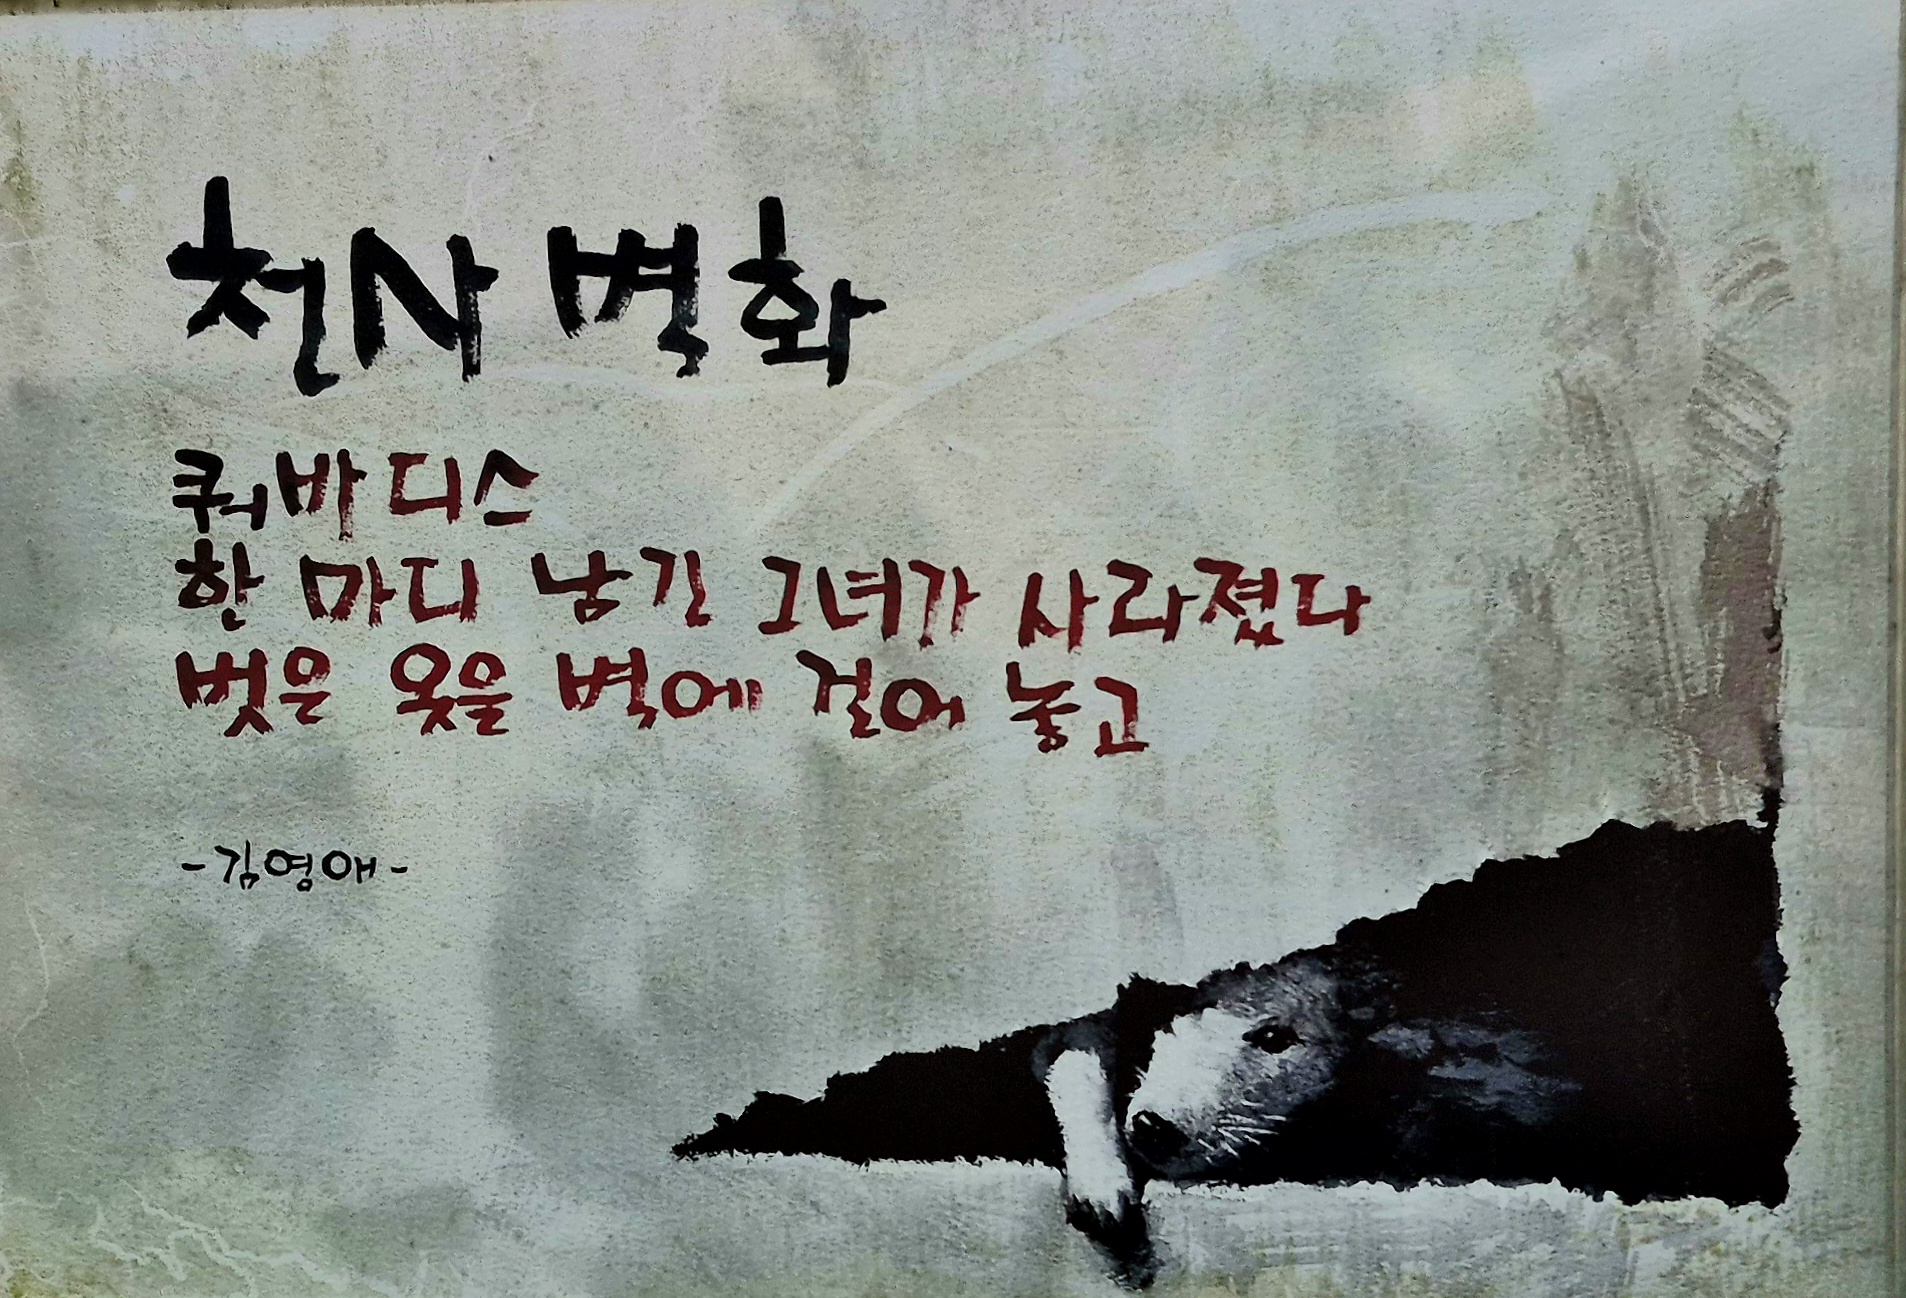 천사 벽화
쿼바디스
한 마디 남긴 그녀가 사라졌다
벗은 옷을 벽에 걸어 놓고
-김영애-